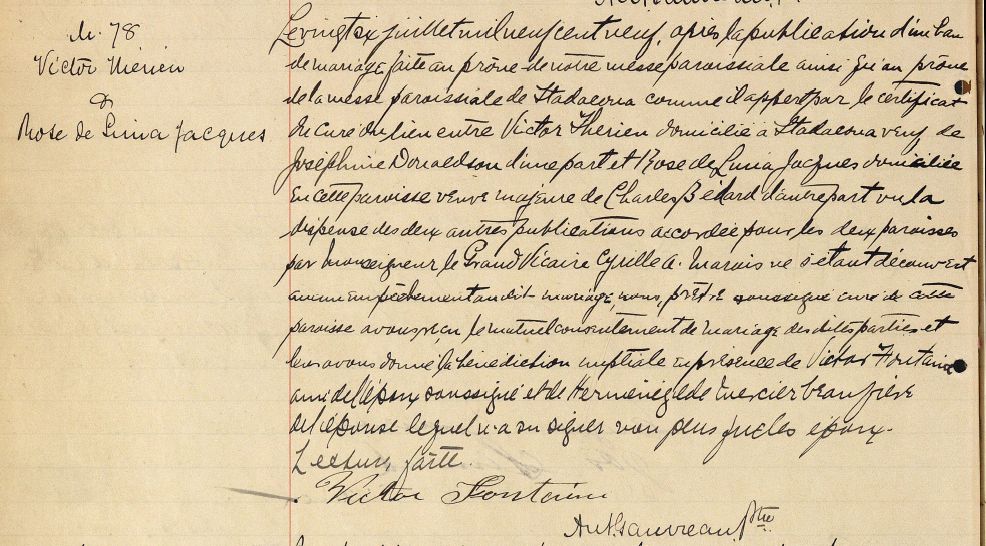 M. 78
Victor Therien
&
Rose de Lima Jacques
Le vingt six juillet mil neuf cent neuf, après la publication d'un ban
de mariage, faite au prône de notre messe paroissiale ainsi qu'au prône
de la messe paroissiale de Stadacona comme il appert par le certificat
du curé du lieu entre Victor Therien domicilié à Stadacona veuf de
Joséphine Donaldson d'une part et Rose de Lima Jacques domiciliée
en cette paroisse veuve majeure de Charles Bédard d'autre part vu la
dispense des deux autres publications accordée pour les deux paroisses
par Monseigneur le Grand Vicaire Cyrille A. Marois ne s'étant découvert
aucun empêchement au dit mariage, nous, prêtre soussigné curé de cette
paroisse avons reçu le mutuel consentement de mariage des dites parties et
leur avons donné la bénédiction nuptiale en présence de Victor Fontaine
ami de l'époux soussigné et de Herménégilde Mercier beau frère
de l'épouse lequel n'a su signer non plus que les époux.
Lecture faite.
Victor Fontaine
Ant. Gauvreau Ptre